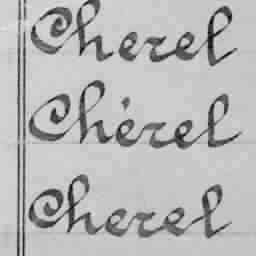 Cherel
Chérel
Cherel